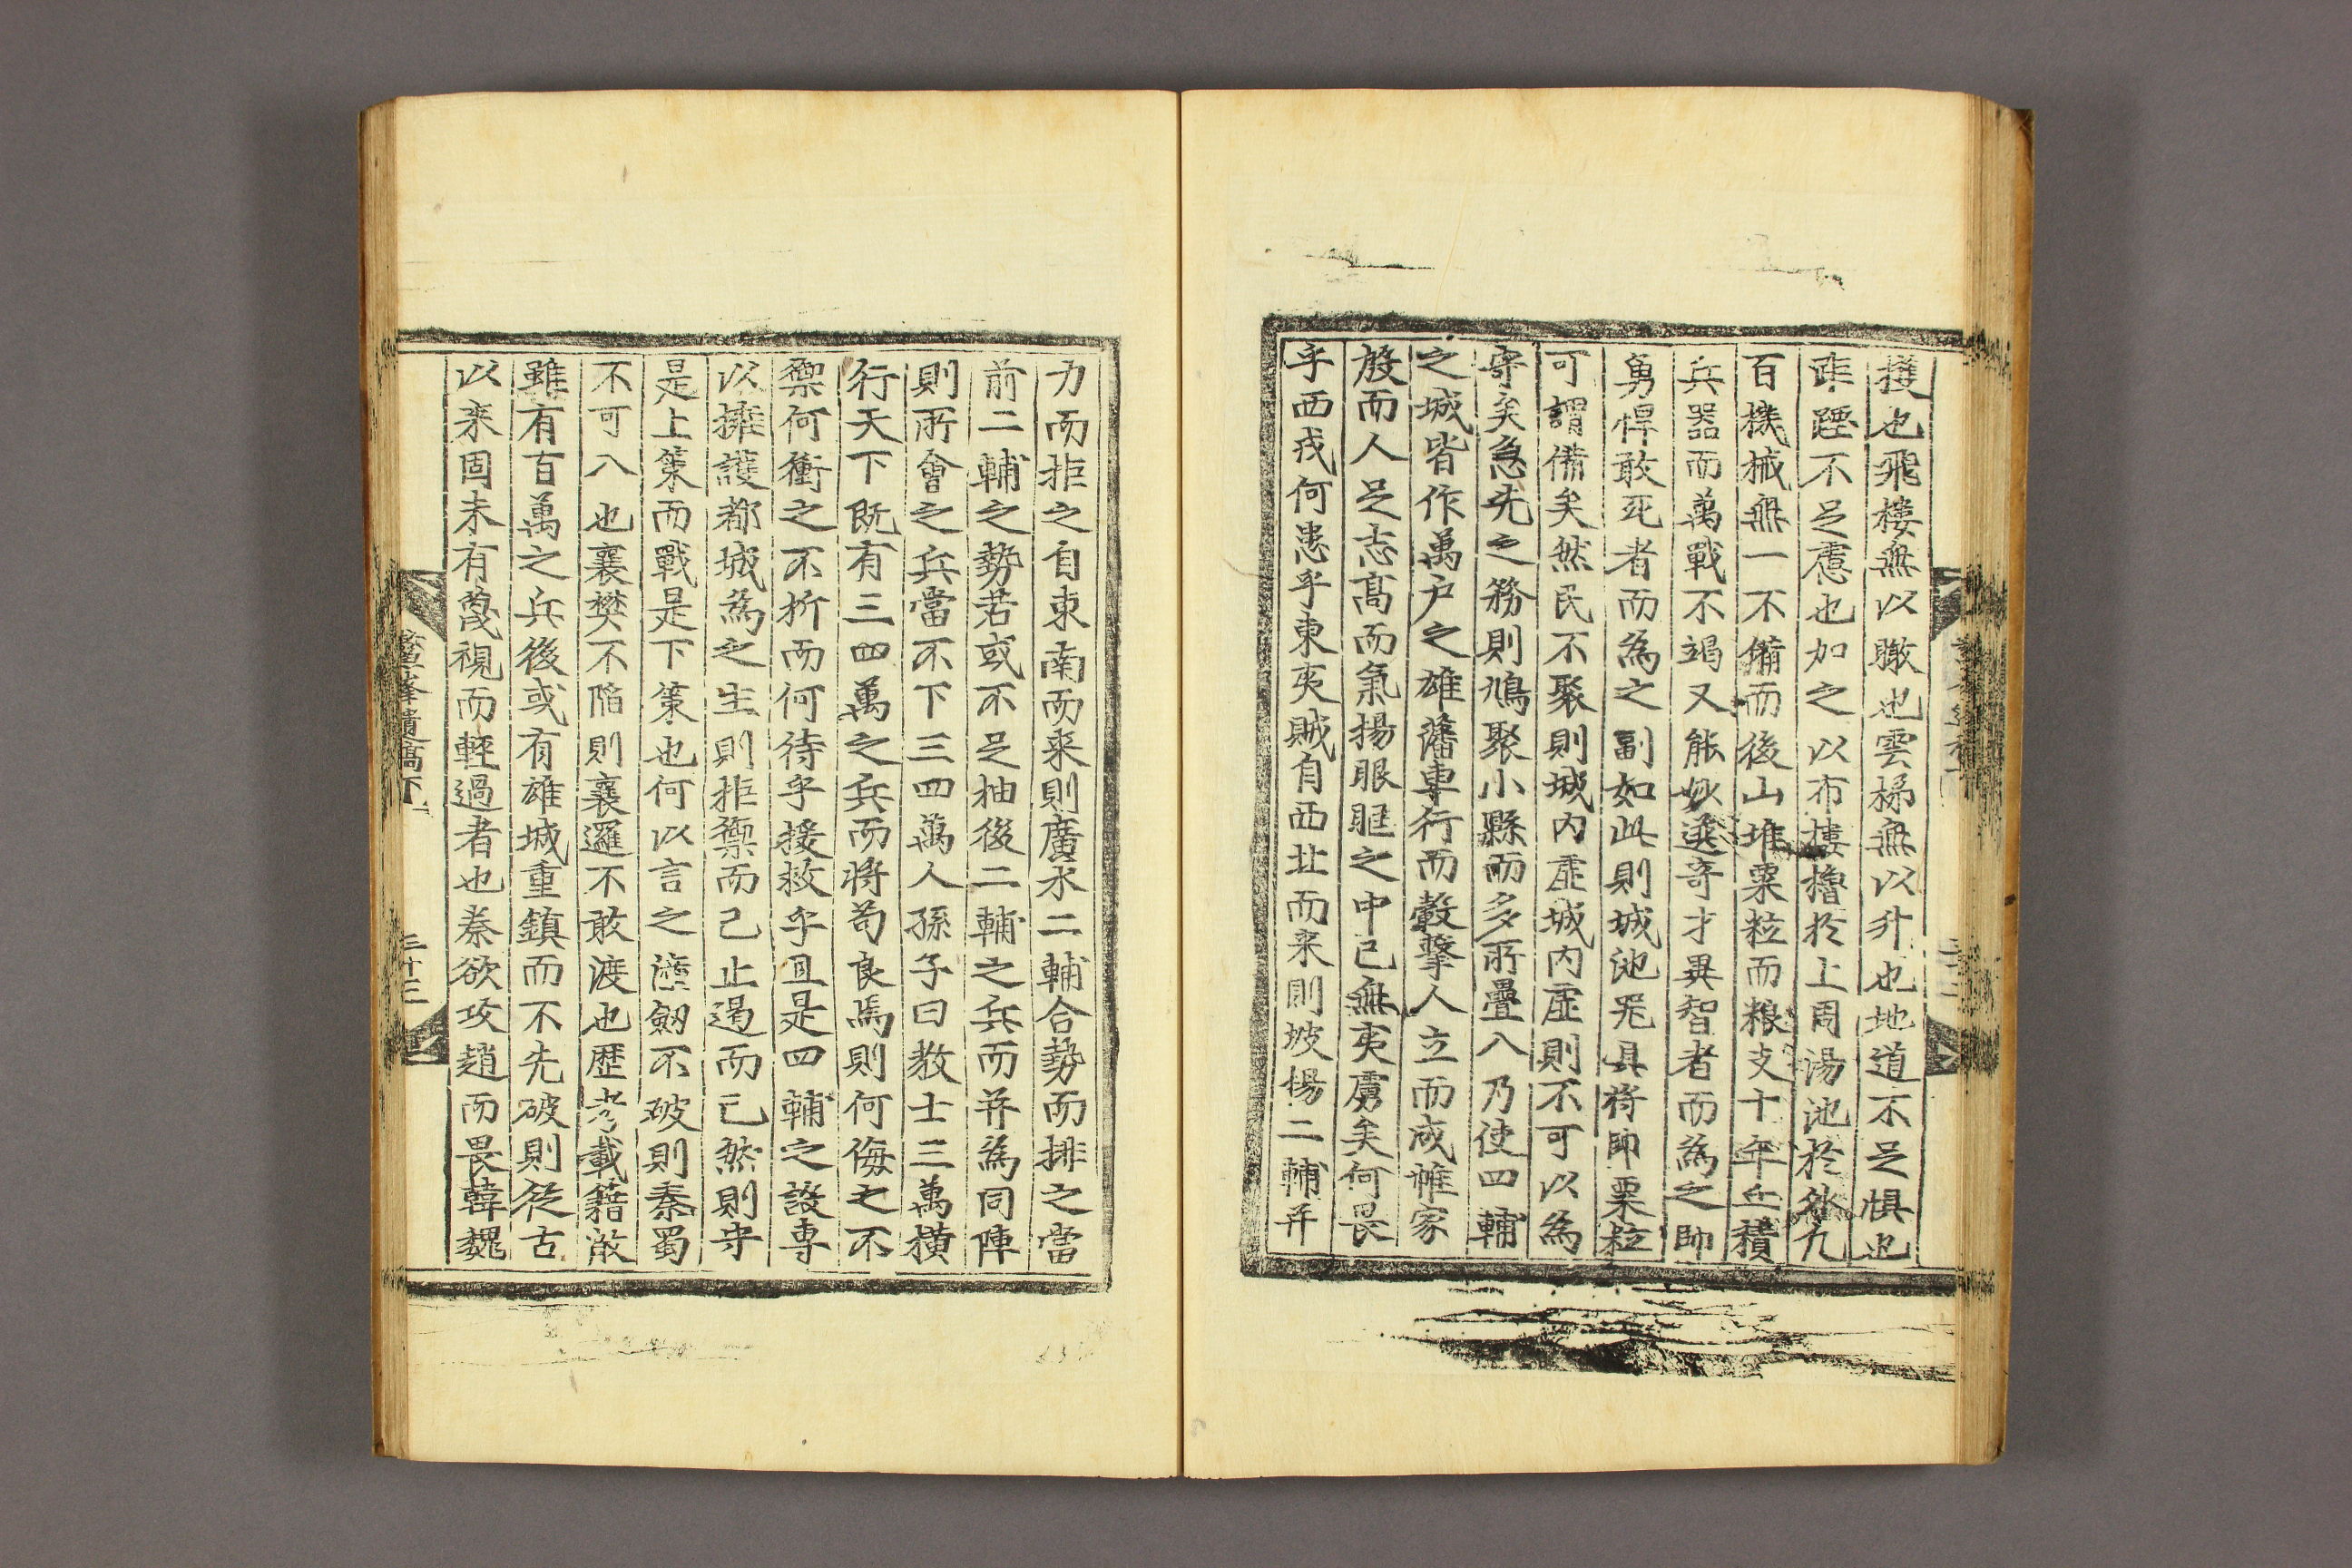 也飛樓無以瞰也雲梯無以升也地道不足惧也
距堙不足慮也加之以布樓櫓於上周湯池於外九
百機械無一不備而後山堆粟粒而粮支十年丘積
兵器而萬戰不竭又能妙選奇才異智者而為之帥
勇悍敢死者而為之副如此則城池器具將帥粟粒
可謂備矣然民不聚則城內虛城內虛則不可以為
守矣急先之務則鳩聚小縣而多所疊入乃使四輔
之城皆作萬戶之雄藩車行而轂擊人立而成帷家
殷而人足志高而氣揚眼眶之中已無夷虜矣何畏
乎西戎何患乎東夷賊自西北而来則坡楊二輔并
力而拒之自東南而来則廣水二輔合勢而排之當
前二輔之勢若或不足抽後二輔之兵而并為同陣
則所會之兵當不下三四萬人孫子曰敎士三萬橫
行天下既有三四萬之兵而將苟良焉則何侮之不
禦何衝之不折而何待乎援救乎且是四輔之設專
以擁護都城為之主則拒禦而已止遏而已然則守
是上策而戰是下策也何以言之潼劒不破則秦蜀
不可入也襄樊不陷則襄邏不敢渡也歷考載籍敵
雖有百萬之兵後或有雄城重鎮而不先破則從古
以来固未有蔑視而輕過者也秦欲攻趙而畏韓魏
峯遺稿下
三十三